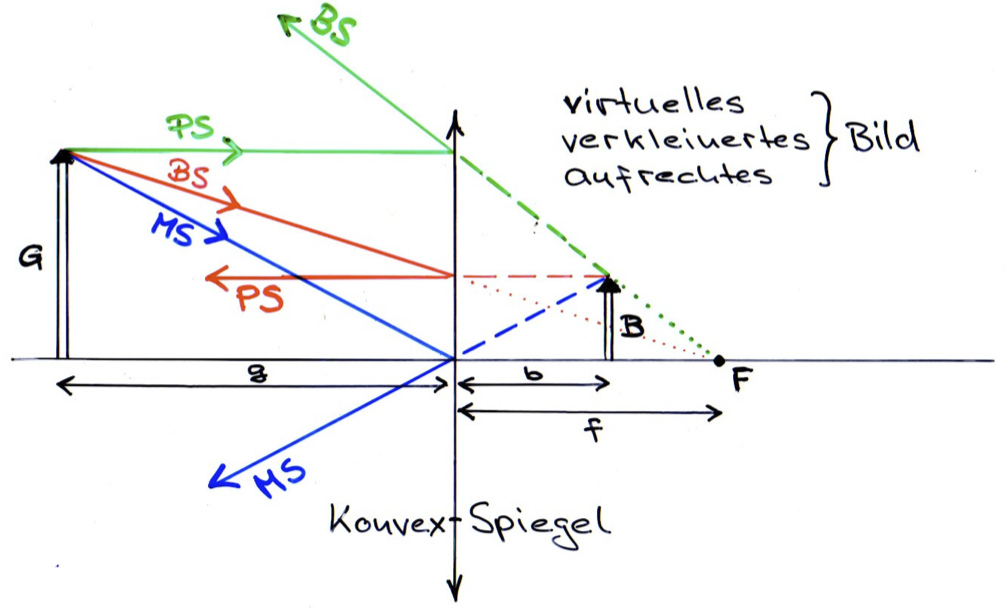 BS
virtuelles
verkleinertes
aufrechtes
Bild
PS
BS
MS
G
PS
B
g
b
F
f
MS
Konvex-Spiegel